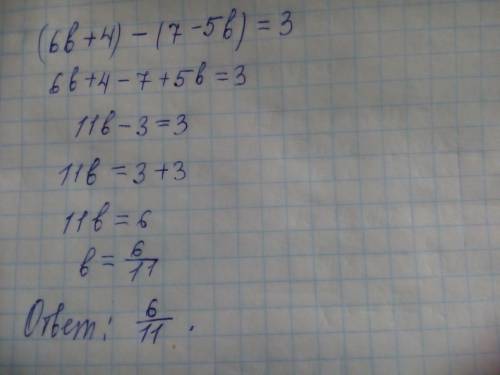 (6в+4)-(7-5в)=3
6в+4-7+5в=3
11в-3=3
11в=3+3
11в=6
в=6/11
Ответ: 6/11.